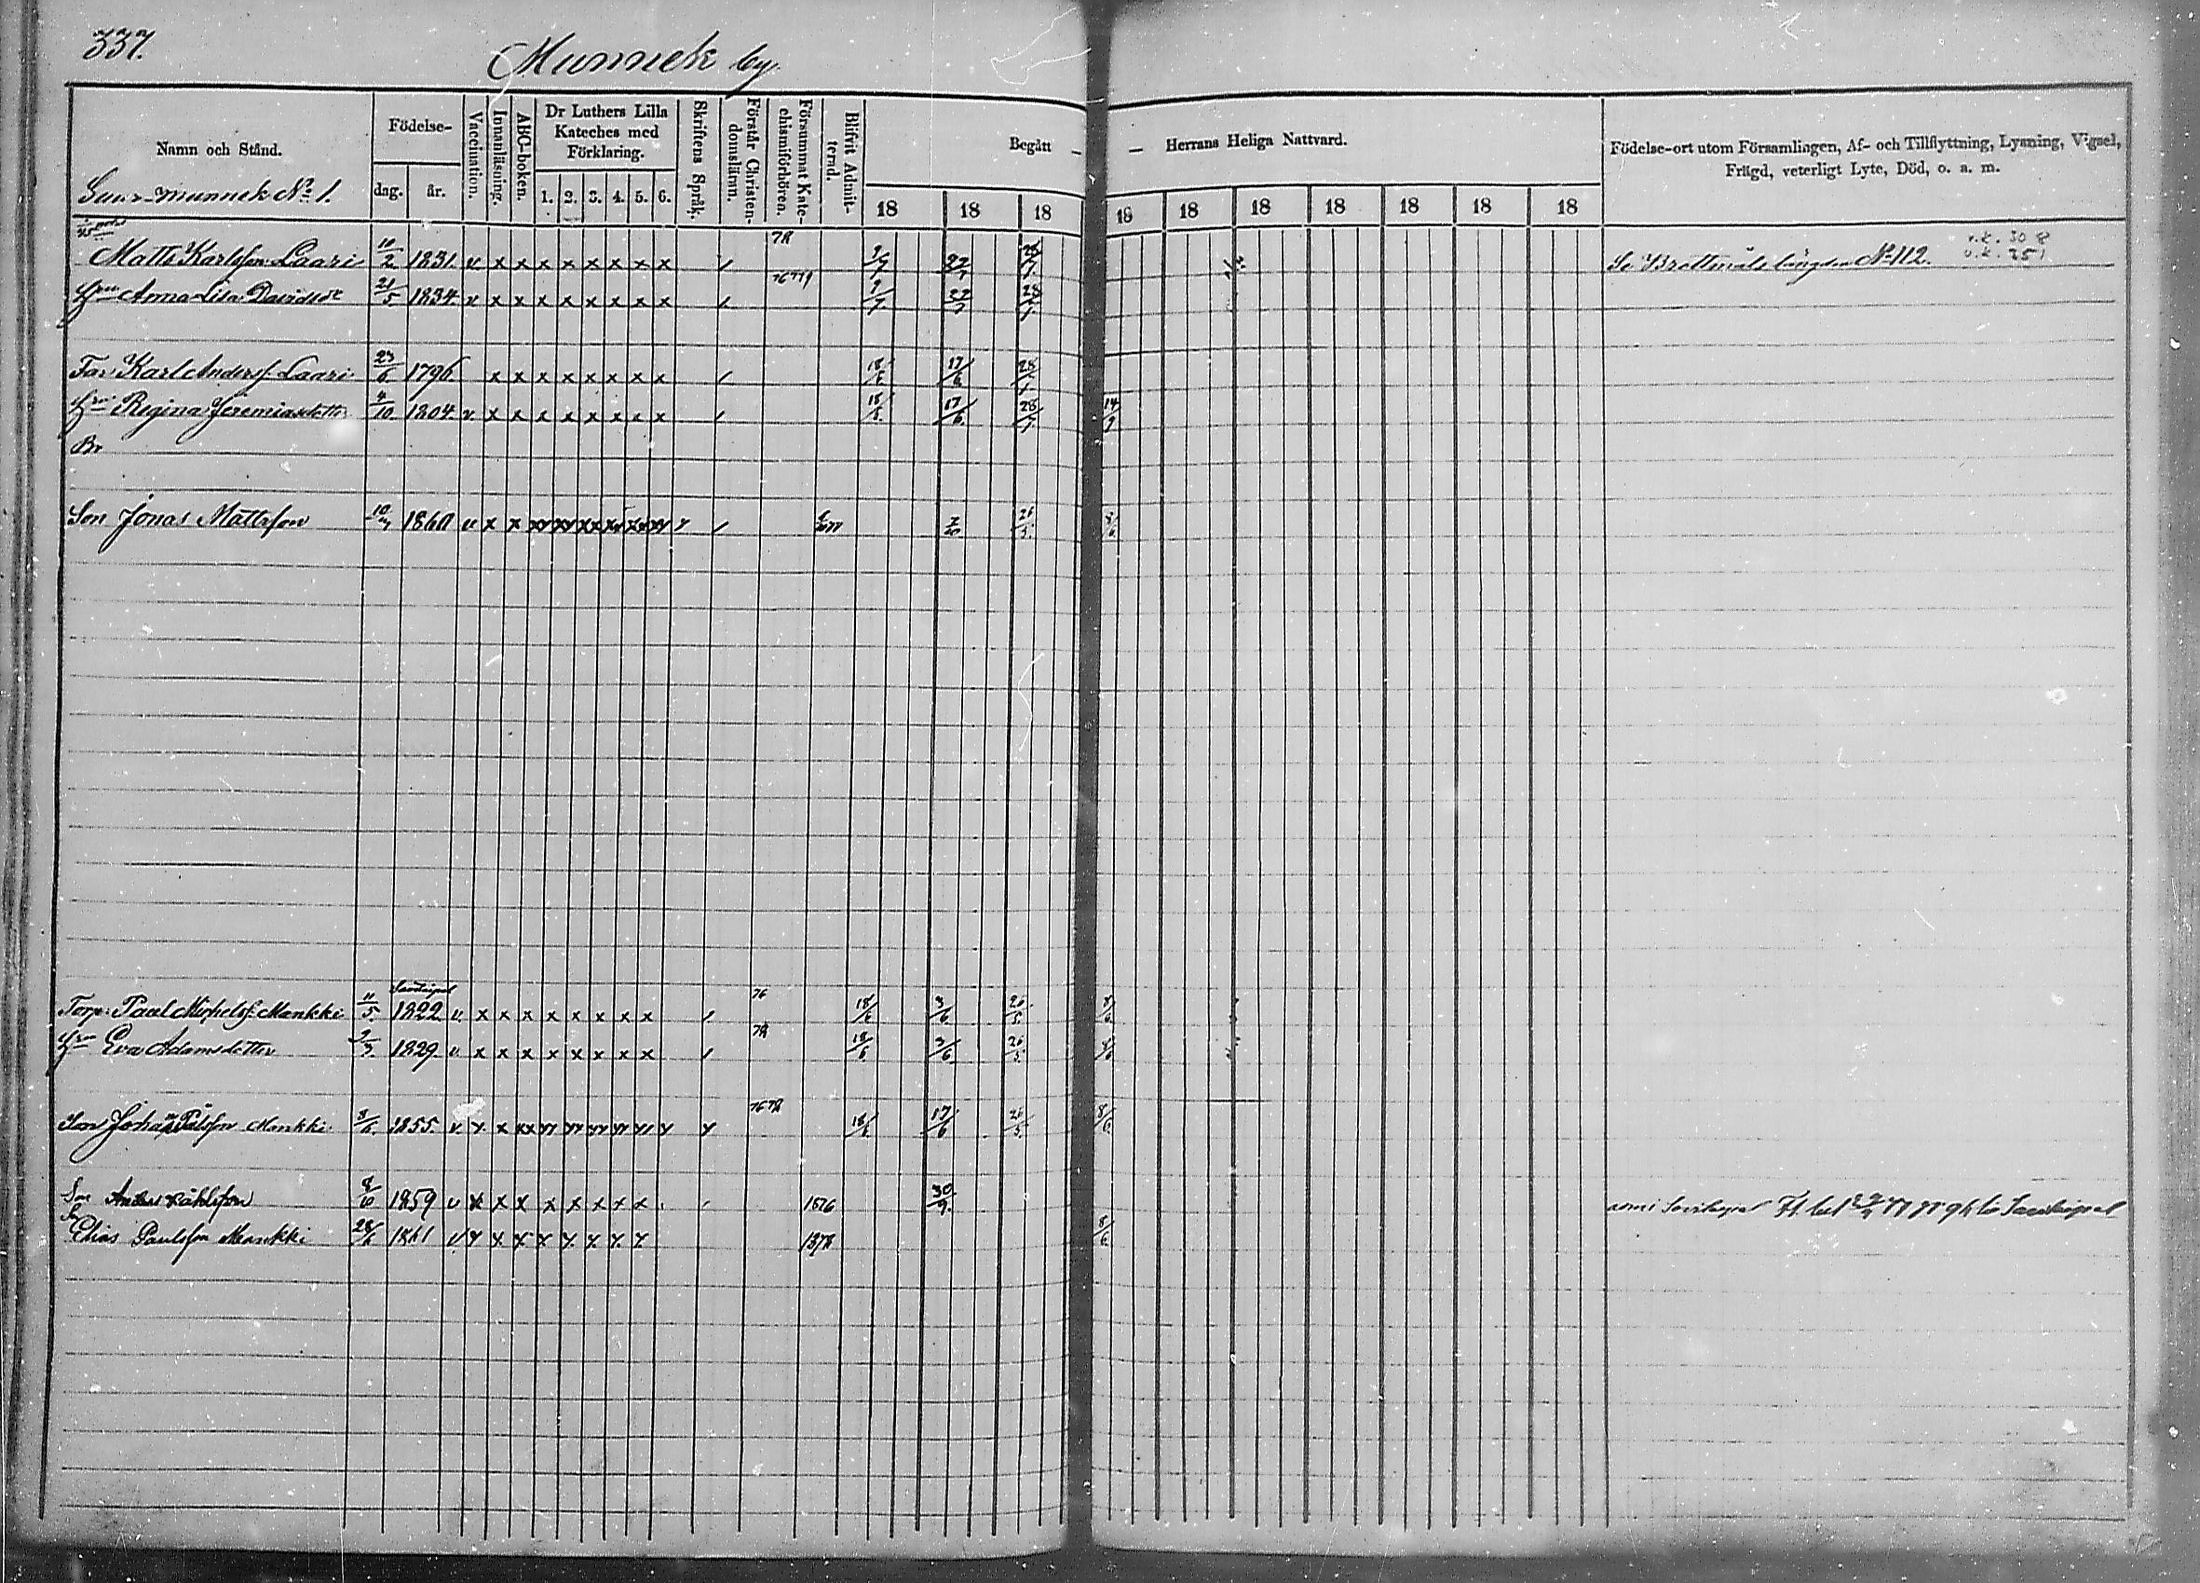 337.
Munnek by.
Namn och Stånd.
Födelse-
dag.
år.
Vaccination.
Innanläsning.
ABC-boken.
Dr Luthers Lilla
Kateches med
Förklaring.
1. 2. 3. 4. 5. 6.
Skriftens Språk.
Förstår Christen-
domsläran.
Försummat Kate-
chismiförhören.
Blifvit Admit-
terad.
Begått — — Herrans Heliga Nattvard.
18 18 18 18 18 18 18 18 18 18
Födelse-ort utom Församlingen, Af- och Tillflyttning, Lysning, Vigsel,
Frägd, veterligt Lyte, Död, o. a. m.
Suur-munnek No 1.
Matts Karlsson Laari 10/2 1831. v x x x x x x x x 78 9/7 22/7 28/7 Se Brottmåls längden No 112. v.k. 308
v.k. 251
Hru Anna Lisa Davidsdr 21/5 1834. v x x x x x x x x 76 77 9/7 22/7 28/7
Far Karl Andersf. Laari 23/6 1796. x x x x x x x x 18/6 17/6 28/7
Hru Regina Jeremiasdotter 4/10 1804. v. x x x x x x x x 18/6. 17/6. 28/7 14/9
Br
Son Jonas Mattsson 10/7 1860 v x x 26/5. 8/6
Savitaipal
Torp. Paul Michelsf. Mankki 11/5. 1822 v. x x x x x x x x 76 18/6 3/6. 26/5. 8/6.
Hru Eva Adamsdotter 2/3 1829. v. x x x x x x x x 78 18/6. 3/6 26/5. 8/6
Son Johan Pålsson Mankki 3/6. 1855. v. 76 78 18/6. 17/6 26/5. 8/6.
Son Anders Påhlsson 8/10 1859 v x x x x x x x x 1876 30/9. Savitaipal
Sn
Elias Paulsson Mankki 28/6 1861 v 1878 8/6.